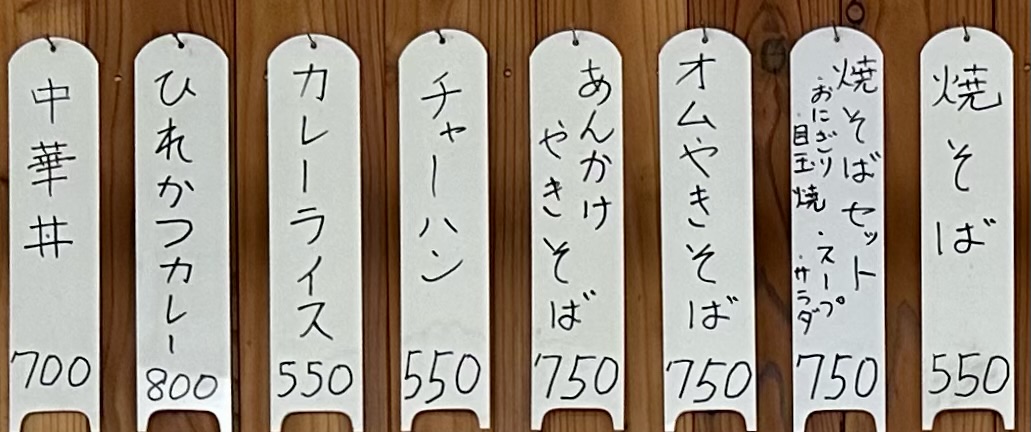 焼そば
550
焼そばセット
・おにぎり・スープ
目玉焼・サラダ
750
オムやきそば
750
あんかけ
やきそば
750
チャーハン
550
カレーライス
550
ひれかつカレー
800
中華丼
700